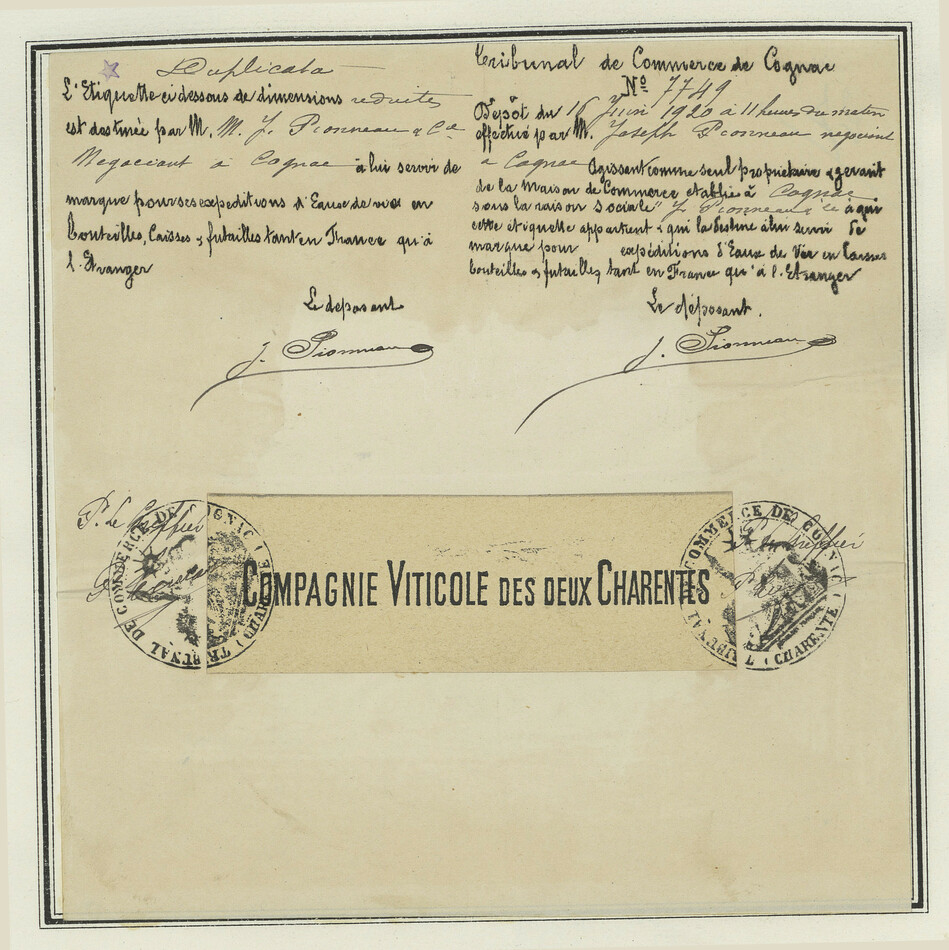 Duplicata
L'Etiquette ci dessous de dimensions reduites
est destinée par M. M. J. Pionneau & Cie
Negociant à Cognac à lui servir de
marque pour ses expeditions d'Eaux de vie en
bouteilles, Caisses & futailles tant en France qu'à
l'Etranger
Le deposant
J. Pionneau
Tribunal de Commerce de Cognac
No 7749
Dépôt du 16 Juin 1920 à 11 heures du matin
effectué par M. Joseph Pionneau negociant
a Cognac Agissant comme seul propriétaire & gerant
de la Maison de Commerce etablie à Cognac
sous la raison sociale J. Pionneau & Cie à qui
cette etiquette appartient & qui la destine à lui servir de
marque pour expéditions d'Eaux de Vie en Caisses
bouteilles & futailles tant en France qu'à l'Etranger
Le déposant.
J. Pionneau
P. Le Greffier
COMPAGNIE VITICOLE DES DEUX CHARENTES
P. Le Greffier
TRIBUNAL DE COMMERCE DE COGNAC (CHARENTE)
TRIBUNAL DE COMMERCE DE COGNAC (CHARENTE)